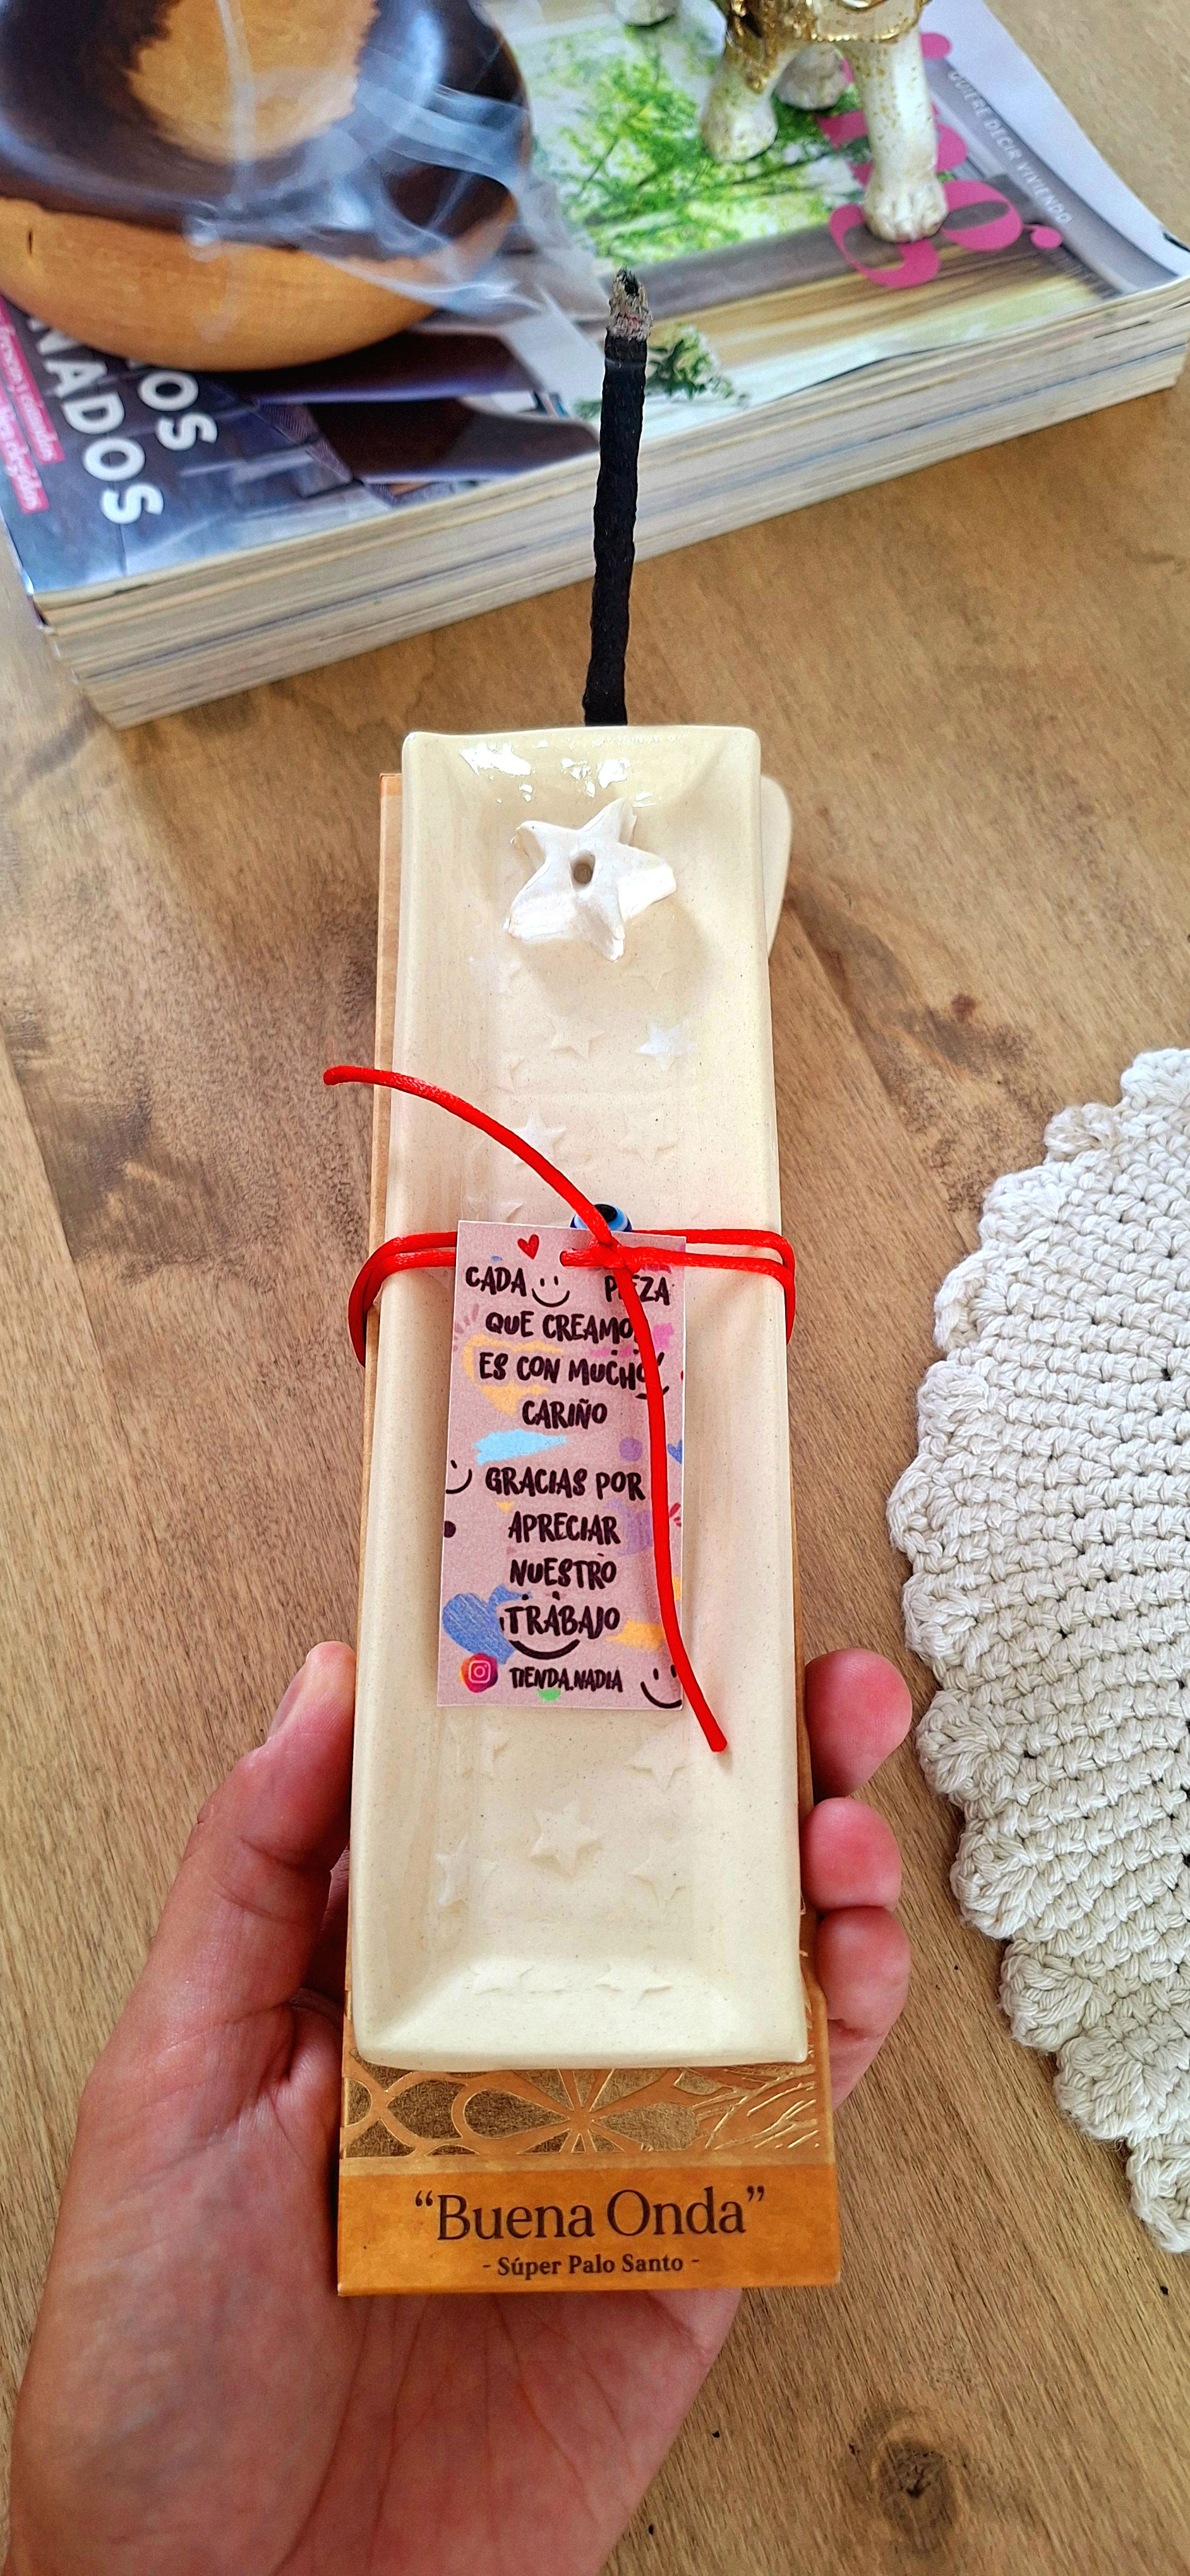 QUIERE DECIR VIVIENDO
NADOS
CADA PIEZA
QUE CREAMOS
ES CON MUCHO
CARIÑO
GRACIAS POR
APRECIAR
NUESTRO
TRABAJO
TIENDA.NADIA
“Buena Onda”
- Súper Palo Santo -